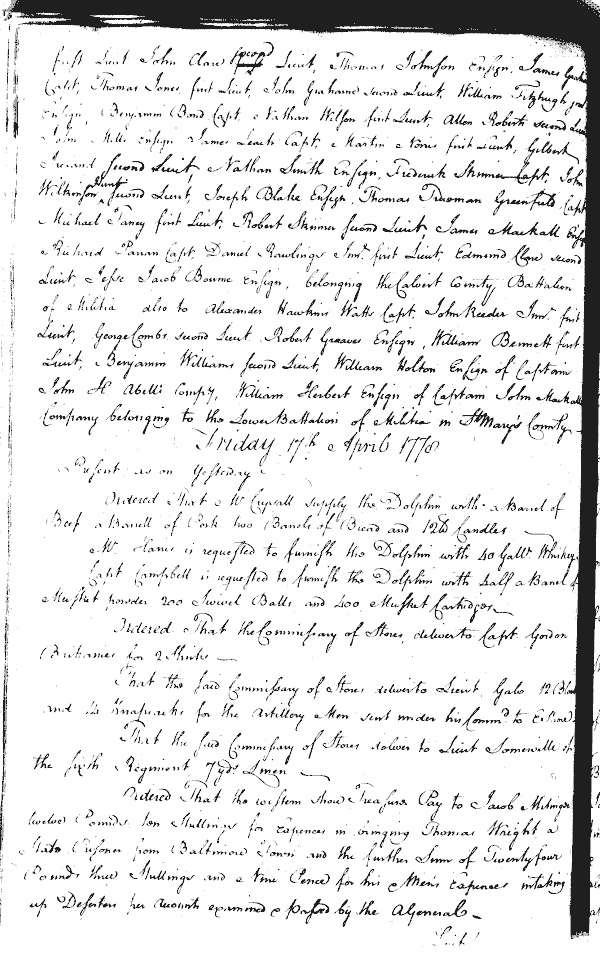 first Lieut John Clare second Lieut, Thomas Johnson Ensign, James
Capt, Thomas Jones, first Lieut, John Grahame second Lieut, William Fitzhugh
Ensign, Benjamin Bond Capt, Nathan Wilson first Lieut, Allen Roberts second Lieut
John Mills Ensign James Leach Capt, Martin Noris first Lieut, Gilbert
Ireland second Lieut Nathan Smith Ensign, Frederick Skinner Capt, John
Wilkinson Lieut second Lieut, Joseph Blake Ensign, Thomas Trueman Greenfield Capt
Michael Taney first Lieut, Robert Skinner second Lieut James Mackall
Richard Parran Capt, Daniel Rawlings Junr. first Lieut, Edmond Clare second
Lieut, Jesse Jacob Bourne Ensign, belonging the Calvert County Battalion
of Militia also to Alexander Hawkins Watts Capt, John Reeder Junr. first
Lieut, George Combs second Lieut, Robert Greaves Ensign, William Bennett first
Lieut, Benjamin Williams second Lieut, William Holton Ensign of Captain
John H Abells Compy, William Herbert Ensign of Captain John Mackall
Company belonging to the Lower Battalion of Militia in St Mary's County
Friday 17th April 1778
Present as on Yesterday
Ordered That Mr Crysall supply the Dolphin with a Barrel of
Beef a Barell of Pork two Barels of Bread and 12lb Candles
Mr. Harris is requested to furnish the Dolphin with 40 Galls. Whiskey
Capt Campbell is requested to furnish the Dolphin with half a Barrel
Musket powder 200 Swivel Balls and 400 Musket Cartridges
Ordered That the Commissary of Stores, deliver to Capt Gordon
Britianies for 2 Shirts
That the said Commissary of Stores deliver to Lieut. Gale 12
and 12 Knapsacks for the Artillery Men sent under his Commd. to E. Shore
That the said Commissary of Stores deliver to Lieut Somerville of
the sixth Regiment 7 yds Linen
Ordered That the western shore Treasurer Pay to Jacob
twelve Pounds ten Shillings for Expences in bringing Thomas Wright a
State Prisoner from Baltimore Town and the further Sum of Twenty four
Pounds three Shillings and Nine Pence for his & Men's Expences in taking
up Deserters per accounts examined & passed by the AGeneral